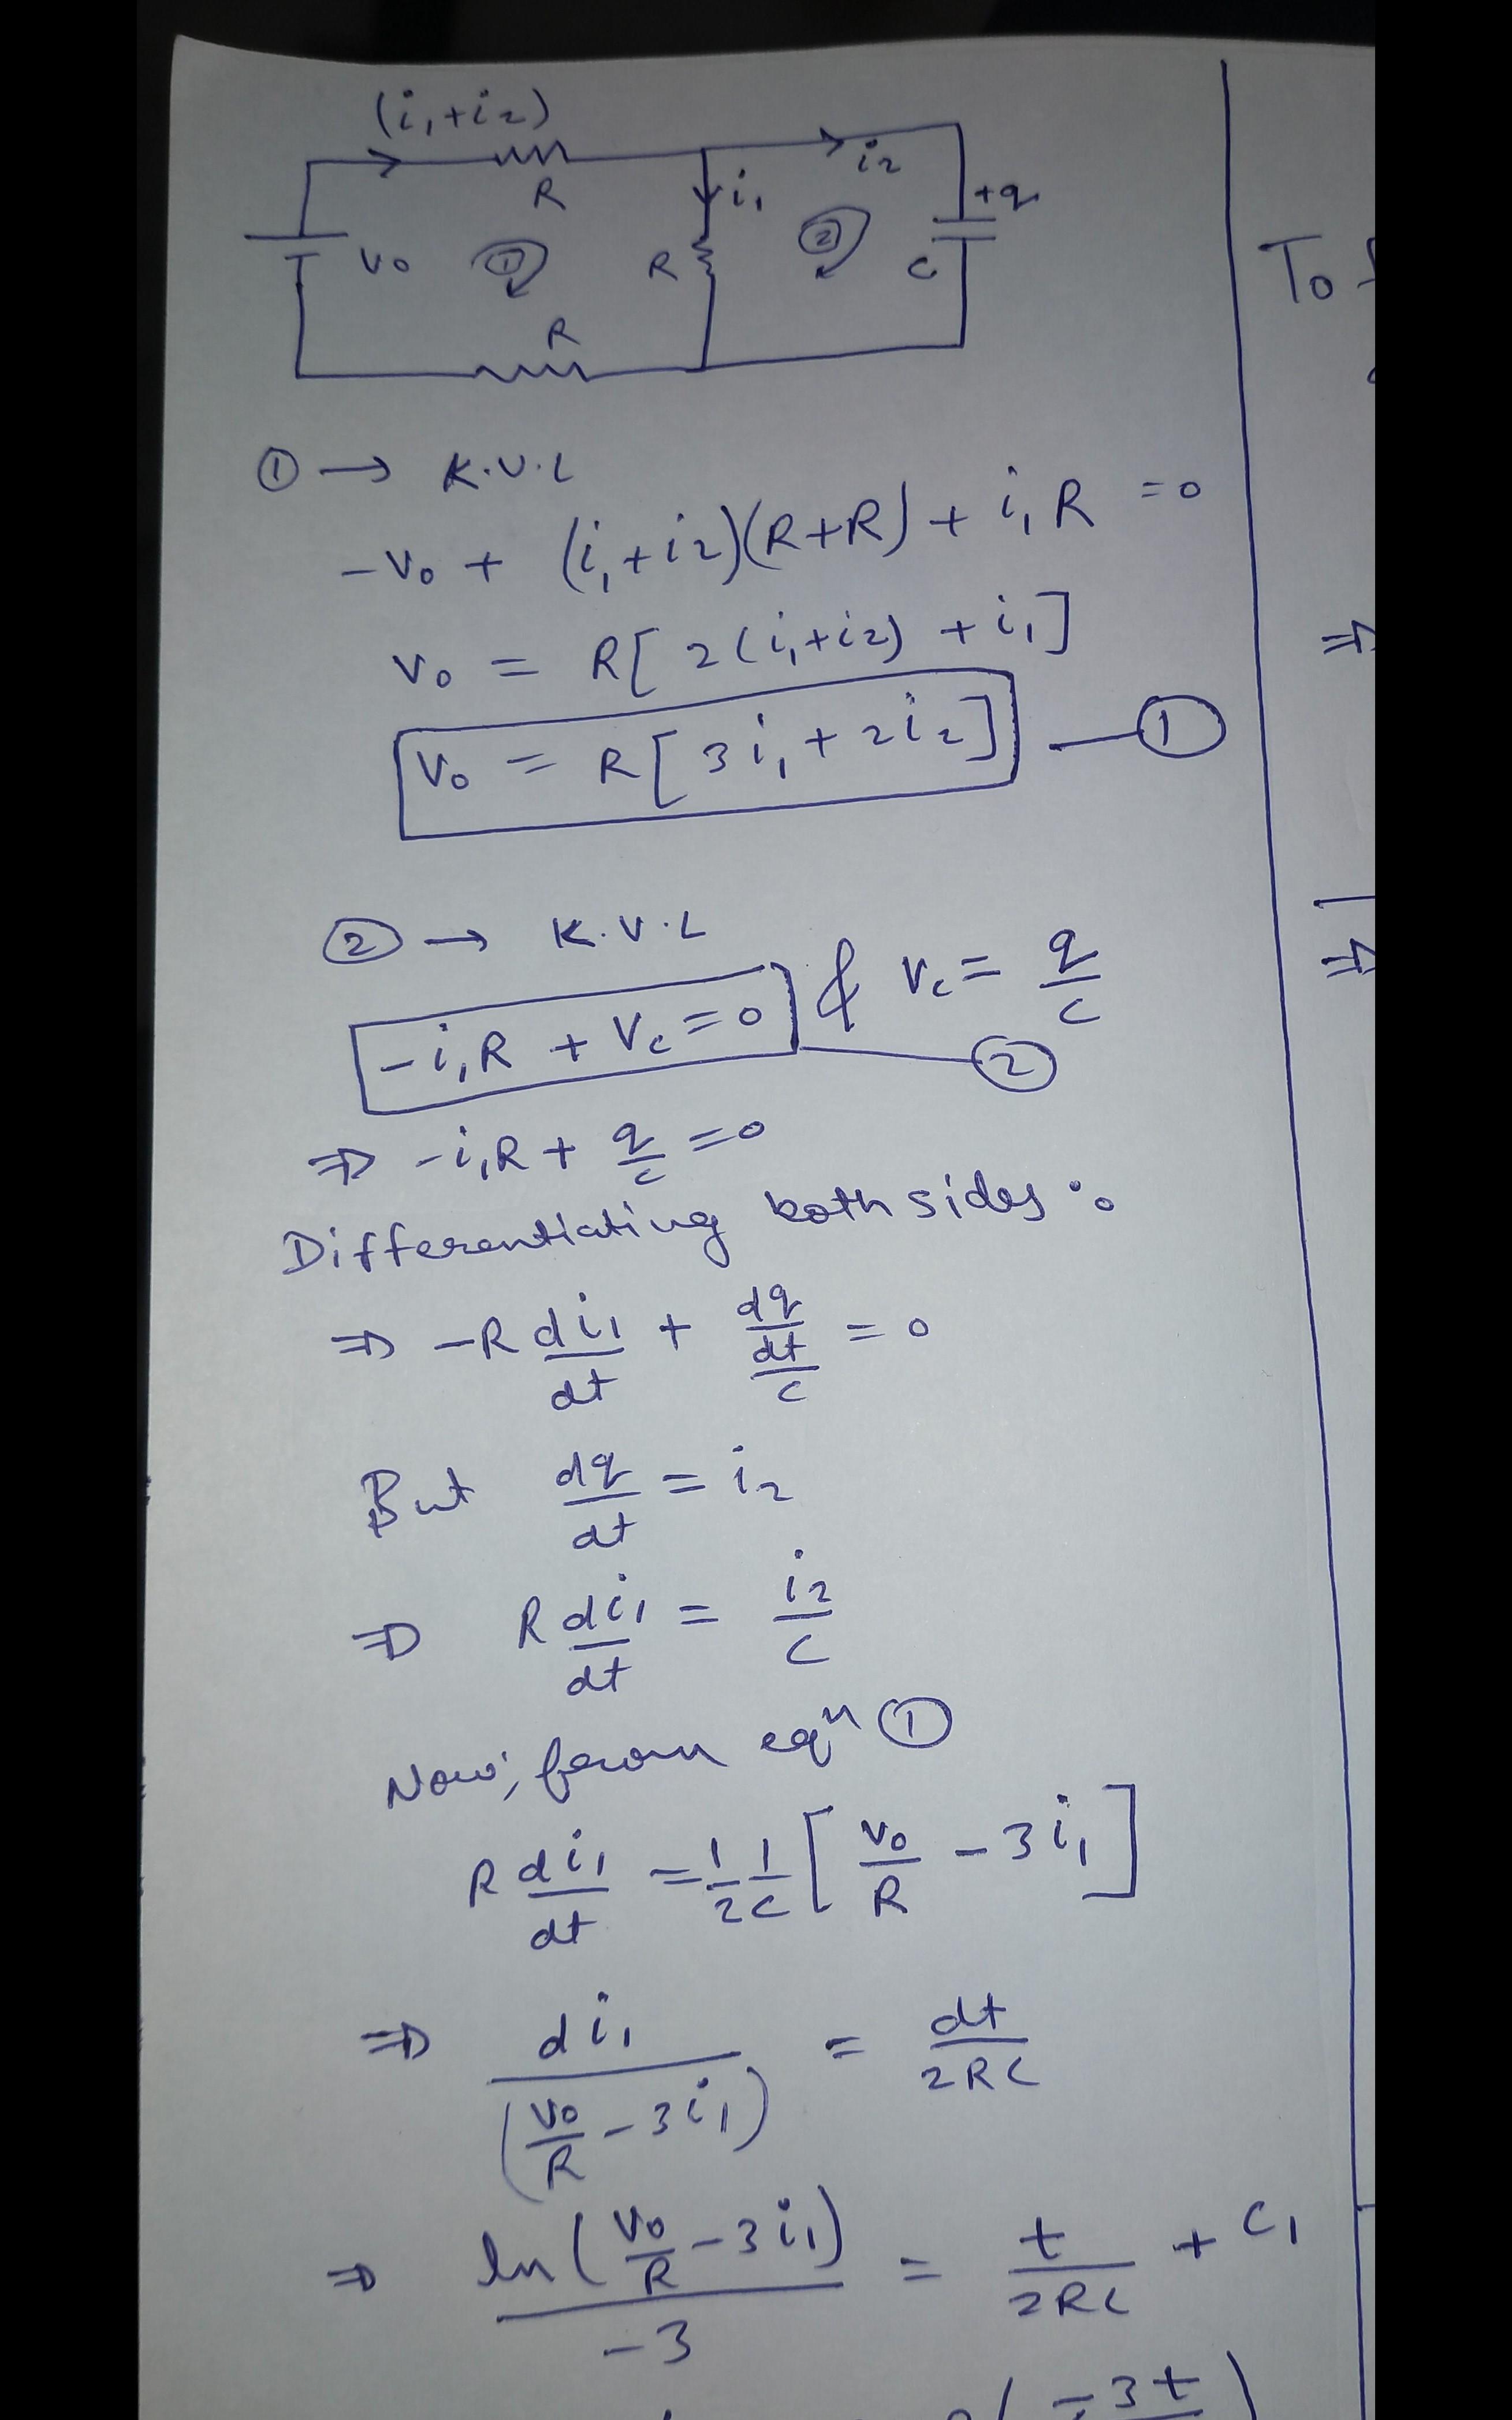 (i₁+i₂)
R
i₁
i₂
+q
V₀
①
R
②
C
R
To
① → K.V.L
-V₀ + (i₁+i₂)(R+R) + i₁R = 0
V₀ = R[2(i₁+i₂) + i₁]
⇒
V₀ = R[3i₁+2i₂] — ①
② → K.V.L
-i₁R + Vc = 0 & Vc = q/C — ②
⇒
⇒ -i₁R + q/C = 0
Differentiating both sides :
⇒ -R di₁/dt + (dq/dt)/C = 0
But dq/dt = i₂
⇒ R di₁/dt = i₂/C
Now, from eqⁿ ①
R di₁/dt = 1/2 1/C [V₀/R - 3i₁]
⇒ di₁/(V₀/R - 3i₁) = dt/2RC
⇒ ln(V₀/R - 3i₁)/-3 = t/2RC + C₁
-3t